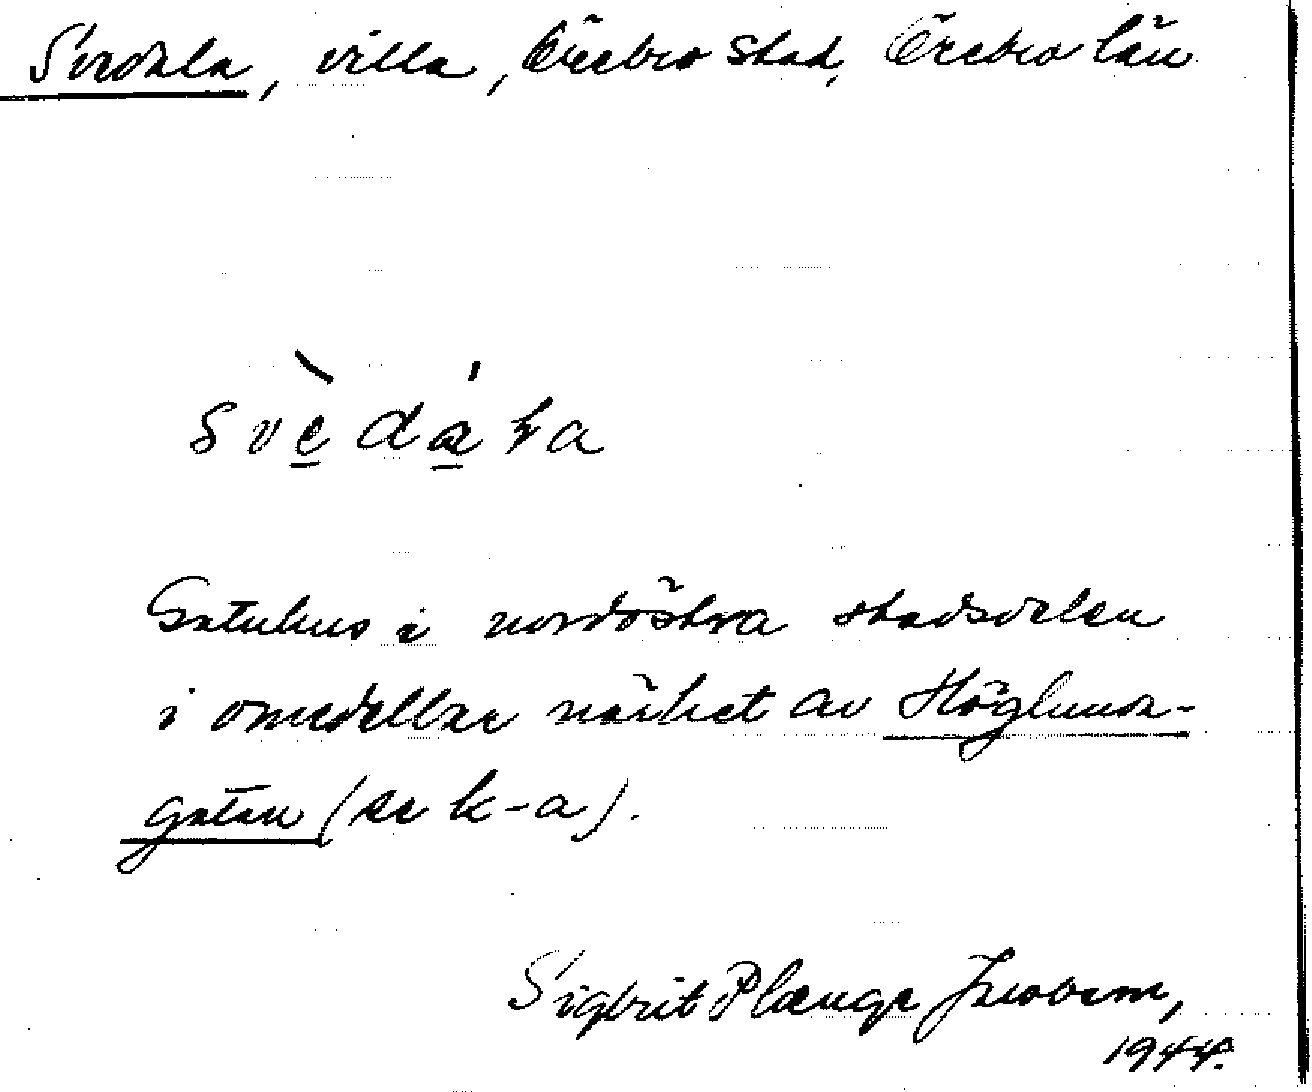 Svedala, villa, Örebro stad, Örebro län
svèdáła
Gatuhus i nordöstra stadsdelen
i omedelbar närhet av Höglunda-
gatan (se k-a).
Sigbrit Plænge Jacobson,
1944.